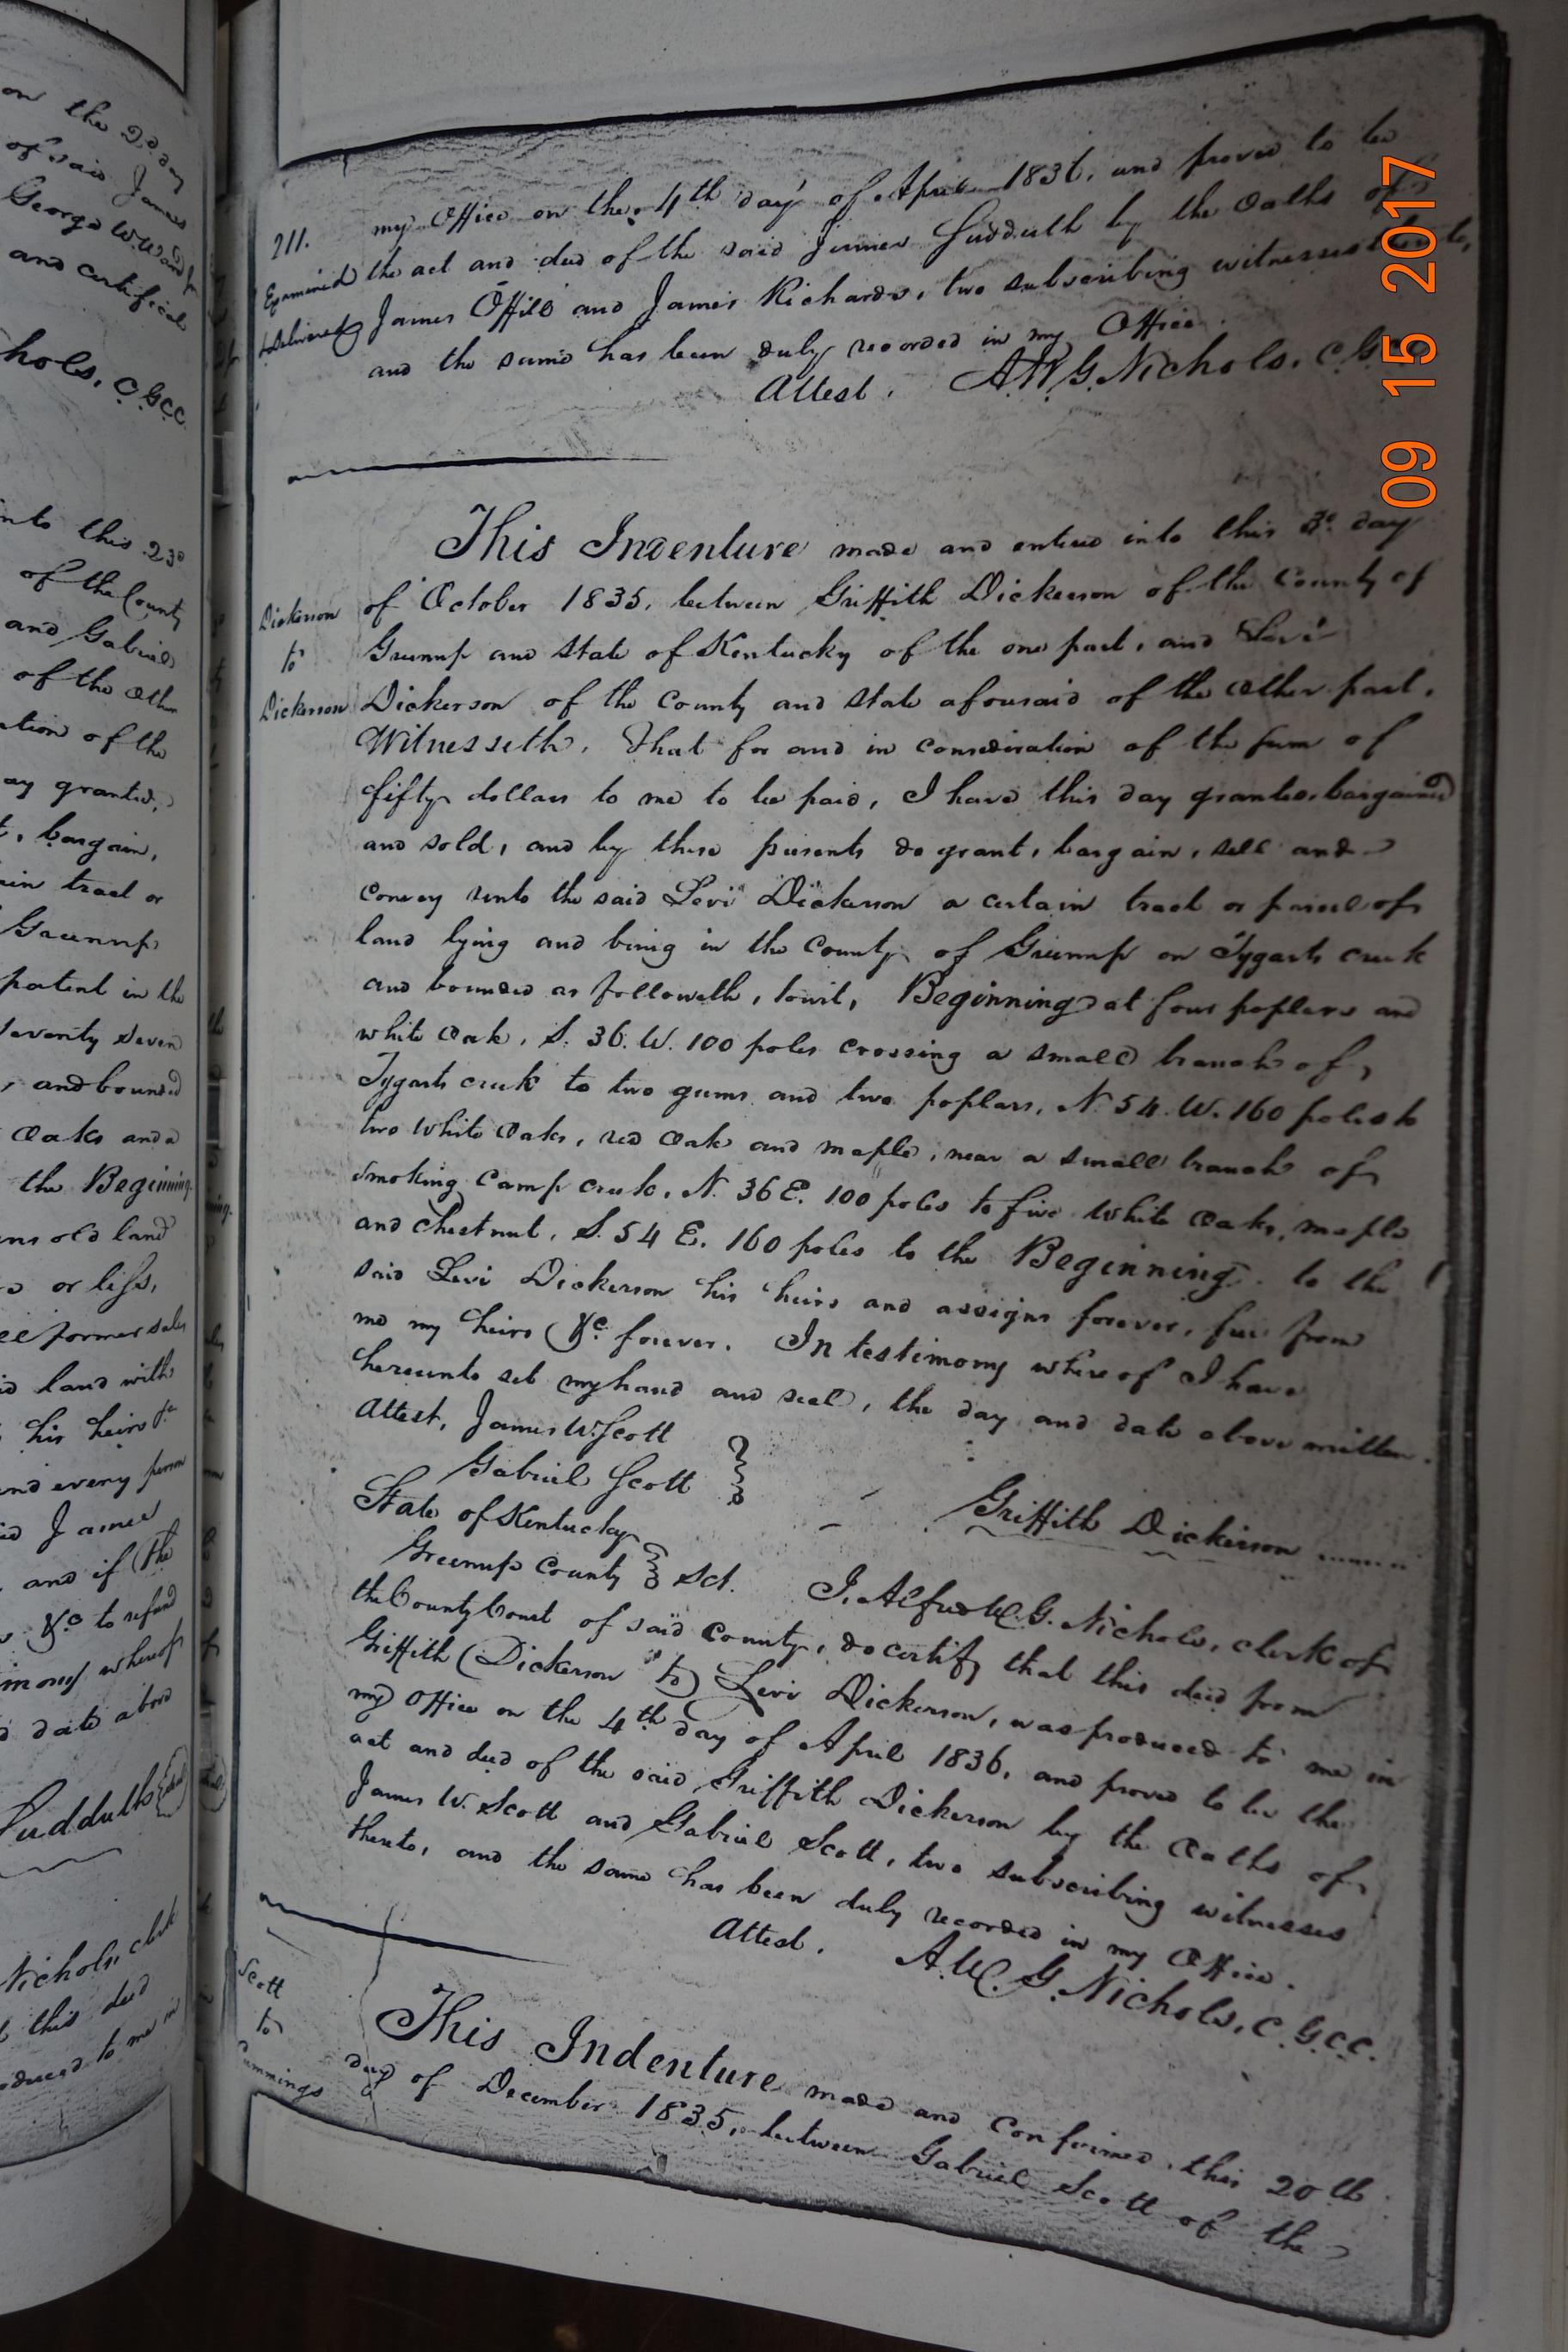 on the 22 day
of said James
George W. Ward
and certificate
hols, C.G.C.C.
into this 23d
of the County
and Gabriel
of the other
ation of the
ay granted,
t, bargain,
ain tract or
Greenup
patent in the
Seventy Seven
, and bounded
Oaks and a
the Beginning
ans old land
or less,
former sales
id land with
his heirs &c
and every person
James
, and if the
&c to refund
imony whereof
d date above
Suddulth Seal
Nichols, clerk
this deed
oduced to me in
211.
my Office on the 4th day of April 1836, and proved to be
Examined the act and deed of the said James Suddulth by the Oaths of
& delivered James Offill and James Richards, two subscribing witnesses
and the same has been duly recorded in my Office.
Attest. A.W.G. Nichols, C.G.
This Indenture made and entered into this 3d. day
Dickerson of October 1835, between Griffith Dickerson of the County of
to Greenup and State of Kentucky of the one part, and Levi
Dickerson Dickerson of the County and State aforesaid of the Other part.
Witnesseth, That for and in consideration of the sum of
fifty dollars to me to be paid, I have this day granted, bargained
and sold, and by these presents do grant, bargain, sell and
convey unto the said Levi Dickerson a certain tract or parcel of
land lying and being in the County of Greenup on Tygarts creek
and bounded as followeth, towit, Beginning at four poplars and
white Oak, S. 36. W. 100 poles crossing a small branch of
Tygarts creek to two gums and two poplars, N. 54. W. 160 poles to
two White Oaks, red Oak and maple, near a small branch of
Smoking Camp creek, N. 36 E. 100 poles to five White Oaks, maple
and Chestnut, S. 54 E. 160 poles to the Beginning. to the
said Levi Dickerson his heirs and assigns forever, free from
me my heirs &c. forever. In testimony whereof I have
hereunto set my hand and seal, the day and date above written.
Attest, James W. Scott
Gabriel Scott
Griffith Dickerson
State of Kentucky
Greenup County Sct. I, Alfred W. G. Nichols, clerk of
the County Court of said County, do certify that this deed from
Griffith Dickerson to Levi Dickerson, was produced to me in
my Office on the 4th day of April 1836, and proved to be the
act and deed of the said Griffith Dickerson by the Oaths of
James W. Scott and Gabriel Scott, two subscribing witnesses
thereto, and the same has been duly recorded in my Office.
Attest. A.W.G. Nichols, C.G.C.C.
Scott
to
Cummings
This Indenture made and confirmed this 20th
day of December 1835, between Gabriel Scott of the
09 15 2017